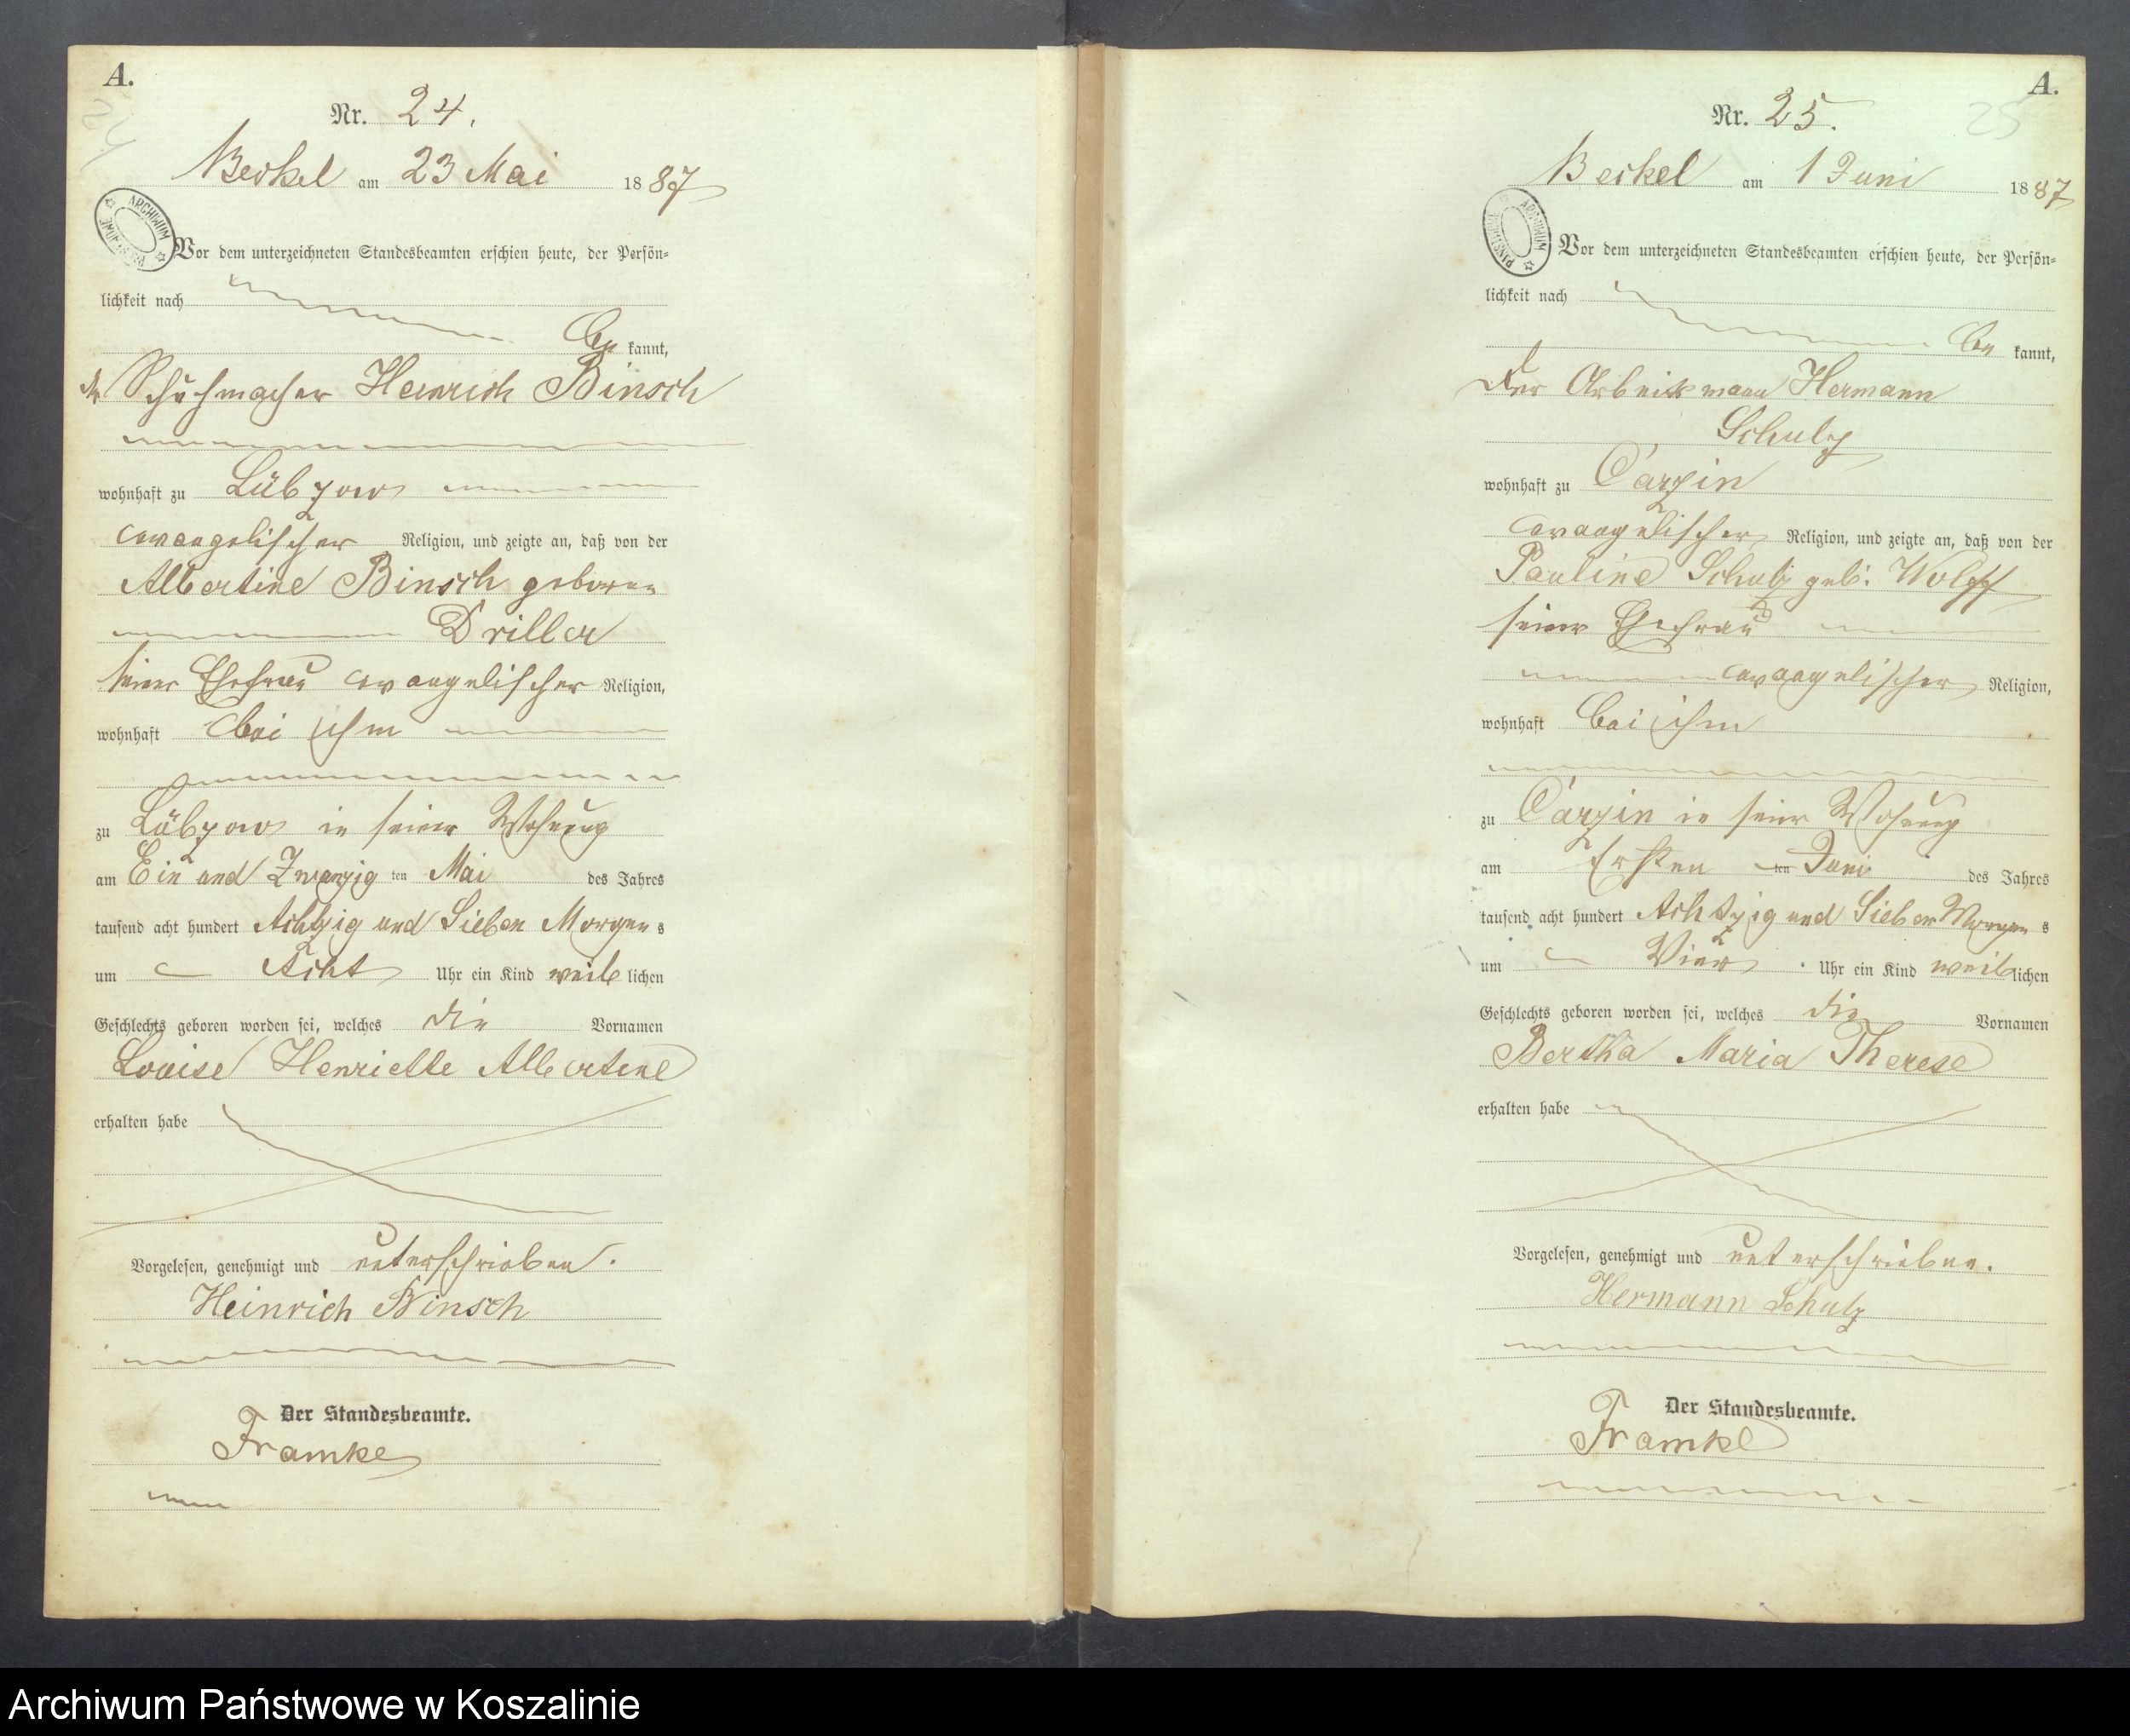 A.
24
Nr. 24.
Beckel am 23 Mai 1887
ARCHIWUM PAŃSTWOWE
Vor dem unterzeichneten Standesbeamten erschien heute, der Persön-
lichkeit nach
be kannt,
der Schuhmacher Heinrich Binsch
wohnhaft zu Lübzow
evangelischer Religion, und zeigte an, daß von der
Albertine Binsch geboren
Driller
seiner Ehefrau evangelischer Religion,
wohnhaft bei ihm
zu Lübzow in seiner Wohnung
am Ein und Zwanzig ten Mai des Jahres
tausend acht hundert Achtzig und Sieben Morgen s
um Acht Uhr ein Kind weib lichen
Geschlechts geboren worden sei, welches die Vornamen
Louise Henriette Albertine
erhalten habe
Vorgelesen, genehmigt und unterschrieben.
Heinrich Binsch
Der Standesbeamte.
Framke
A.
25
Nr. 25.
Beckel am 1 Juni 1887
ARCHIWUM PAŃSTWOWE
Vor dem unterzeichneten Standesbeamten erschien heute, der Persön-
lichkeit nach
be kannt,
der Arbeitsmann Hermann
Schulz
wohnhaft zu Carzin
evangelischer Religion, und zeigte an, daß von der
Pauline Schulz geb. Wolff
seiner Ehefrau
evangelischer Religion,
wohnhaft bei ihm
zu Carzin in seiner Wohnung
am Ersten ten Juni des Jahres
tausend acht hundert Achtzig und Sieben Morgen s
um Vier Uhr ein Kind weib lichen
Geschlechts geboren worden sei, welches die Vornamen
Bertha Maria Therese
erhalten habe
Vorgelesen, genehmigt und unterschrieben.
Hermann Schulz
Der Standesbeamte.
Framke
Archiwum Państwowe w Koszalinie